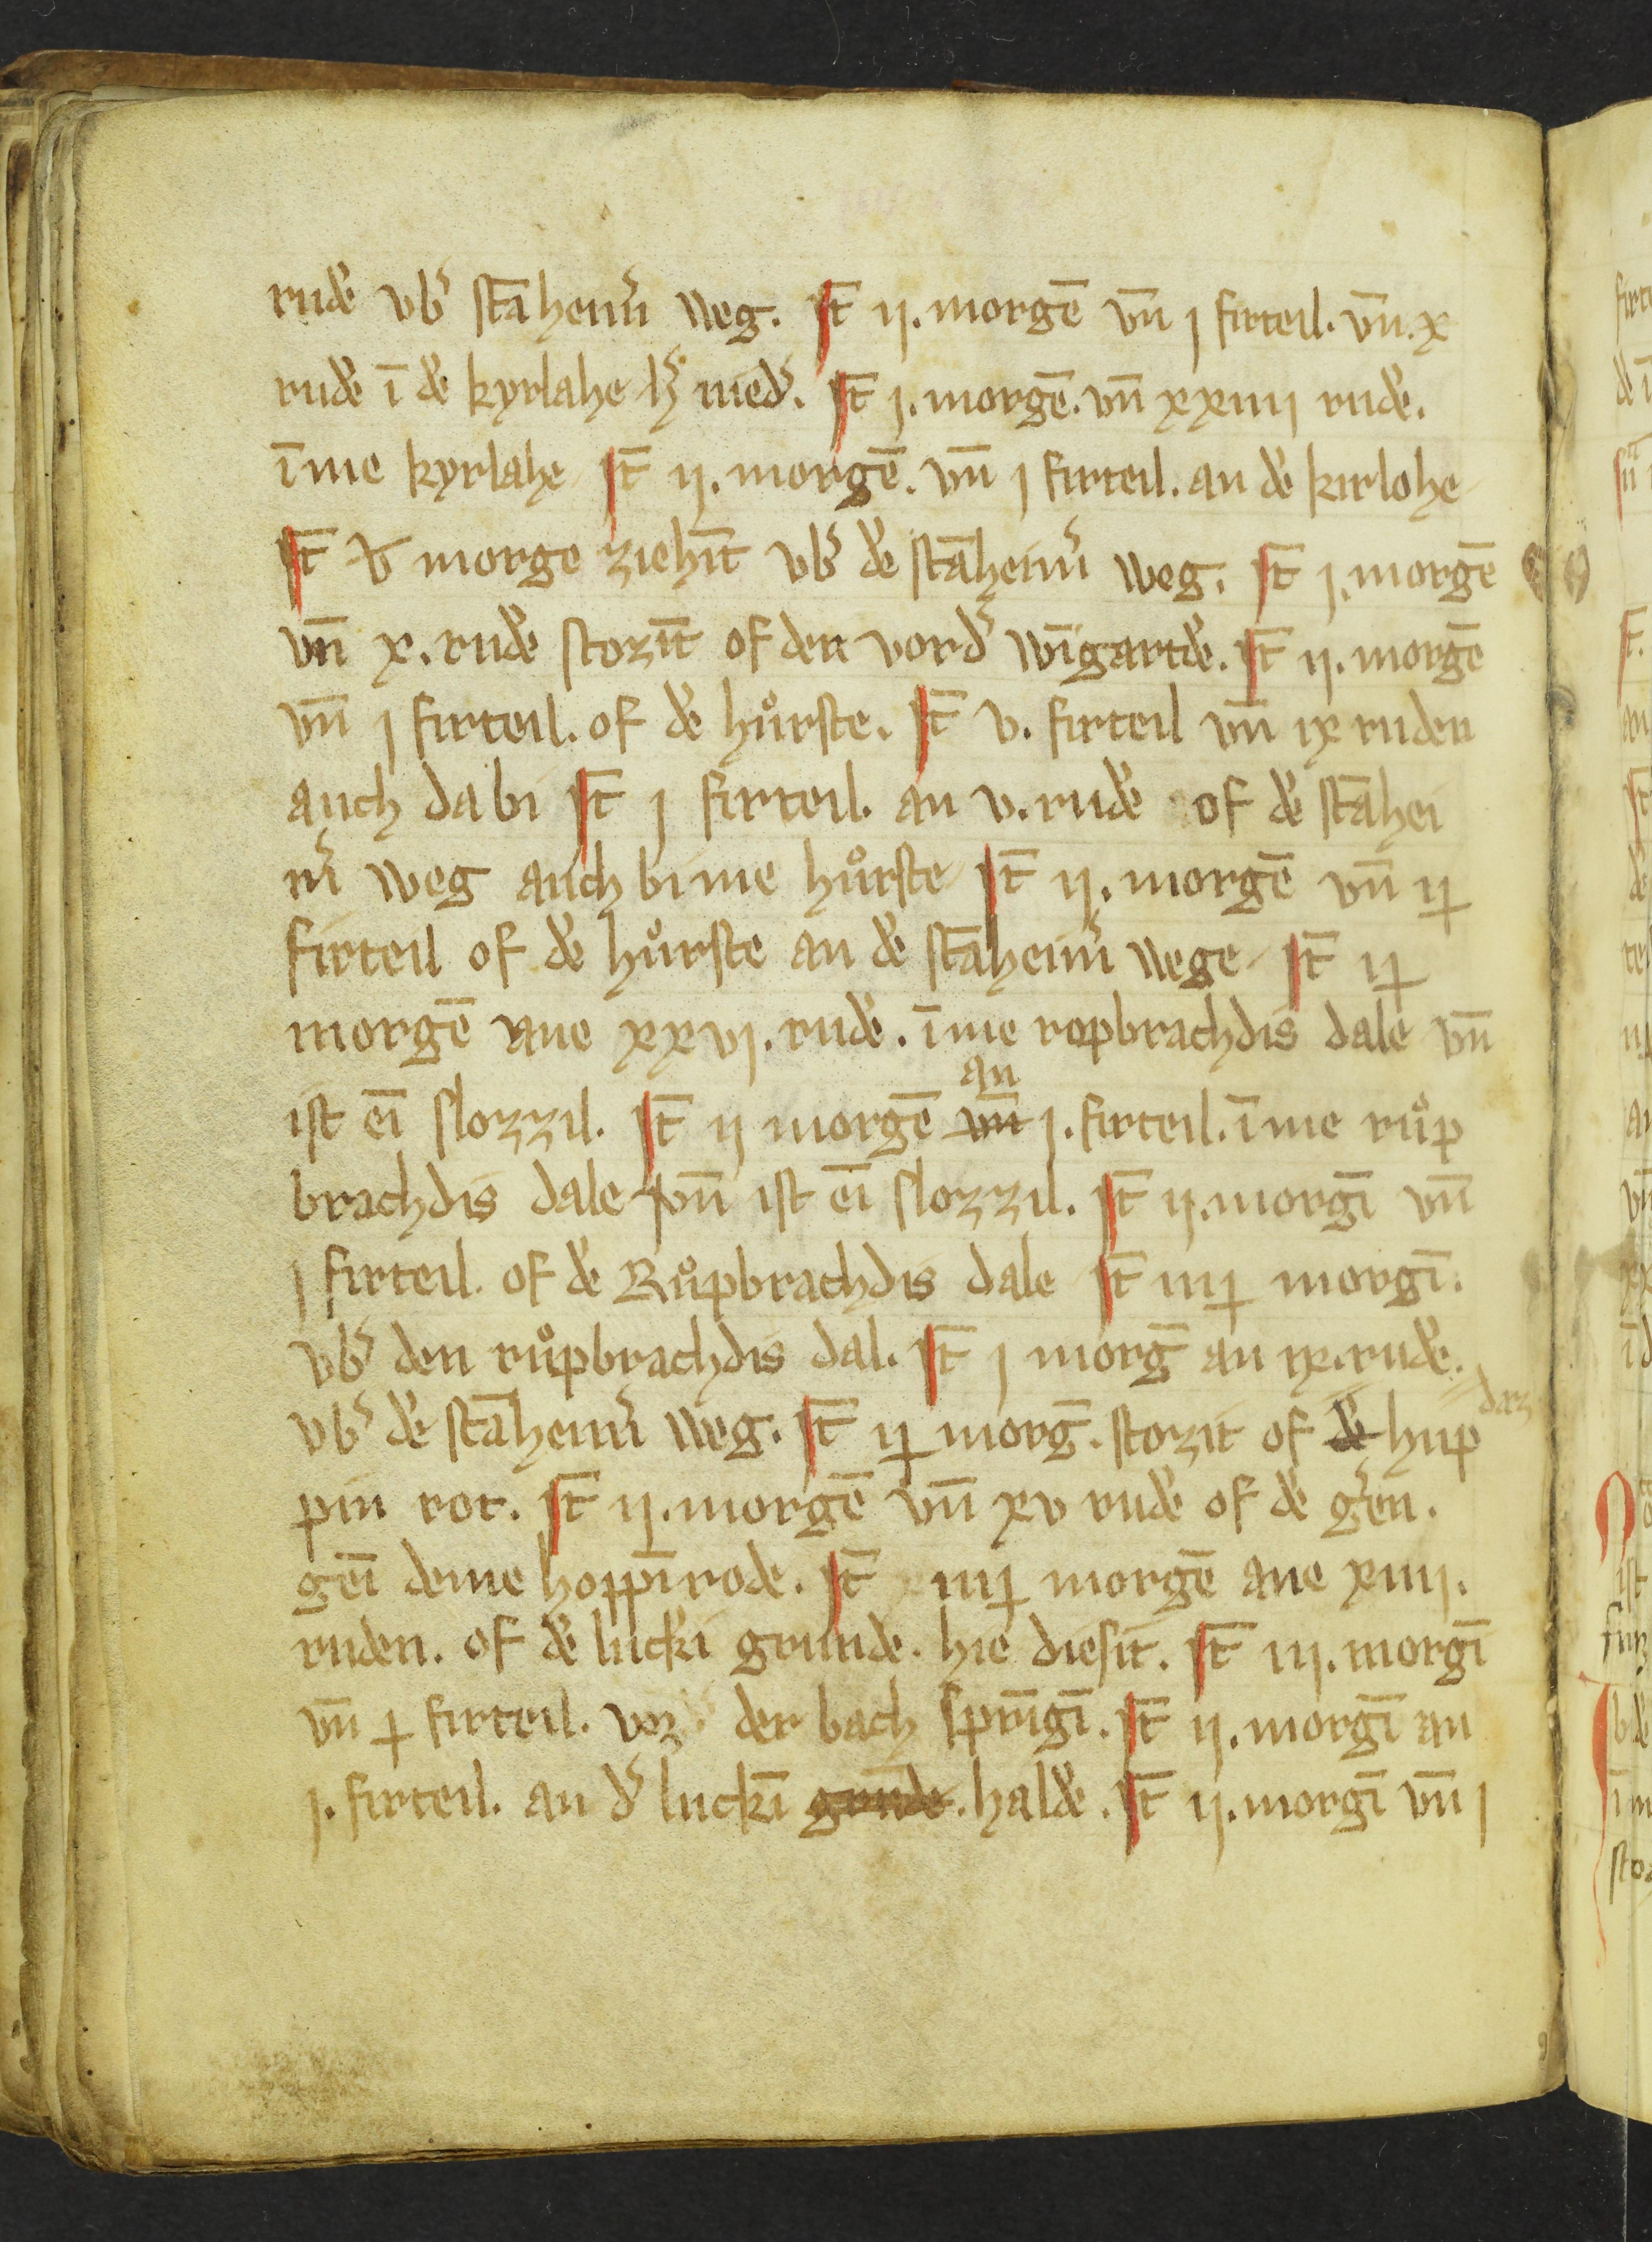 rudē vbˀ stāheimˀ weg. It̄ ij. morgē vn̄ j firteil. vn̄. x
rudē ī dē kyrlahe hˀ niedˀ. It̄ j. morgē. vn̄ xxiiij rudē.
īme kyrlahe It̄ ij. morgē. vn̄ j firteil. an dē kirlohe
It̄ v morge ziehīt vbˀ dē stāheimˀ weg. It̄ j. morgē
vn̄ x. rudē stozīt of den vordˀ wīgartdē. It̄ ij. morgē
vn̄ j firteil. of dē hůrste. It̄ v. firteil vn̄ ix ruden
auch da bi It̄ j firteil. an v. rudē of dē stāhei
mˀ weg auch bi me hůrste It̄ ij. morgē vn̄ ij
firteil of dē hůrste an dē stāheimˀ wege It̄ ij
morgē ane xxvj. rudē. īme ropbrachdis dale vn̄
an
ist eī slozzil. It̄ ij morgē vn̄ j. firteil. īme růp
brachdis dale vn̄ ist eī slozzil. It̄ ij. morgī vn̄
j firteil. of dē Růpbrachdis dale It̄ iiij morgī.
vbˀ den růpbrachdis dal. It̄ j morḡ an ix. rudē.
daz
vbˀ dē stāheimˀ weg. It̄ ij morḡ. stozit of dē hup
pin rot. It̄ ij. morgē vn̄ xv rudē of dē gˀen.
geī deme hoppīrode. It̄ iiij morgē ane xiiij.
ruden. of dē lucki grunde. hie diesit. It̄ iij. morgī
vn̄ j firteil. voz der bach sprīgī. It̄ ij. morgī an
j. firteil. an dˀ luckī grūde. haldē. It̄ ij. morgī vn̄ j